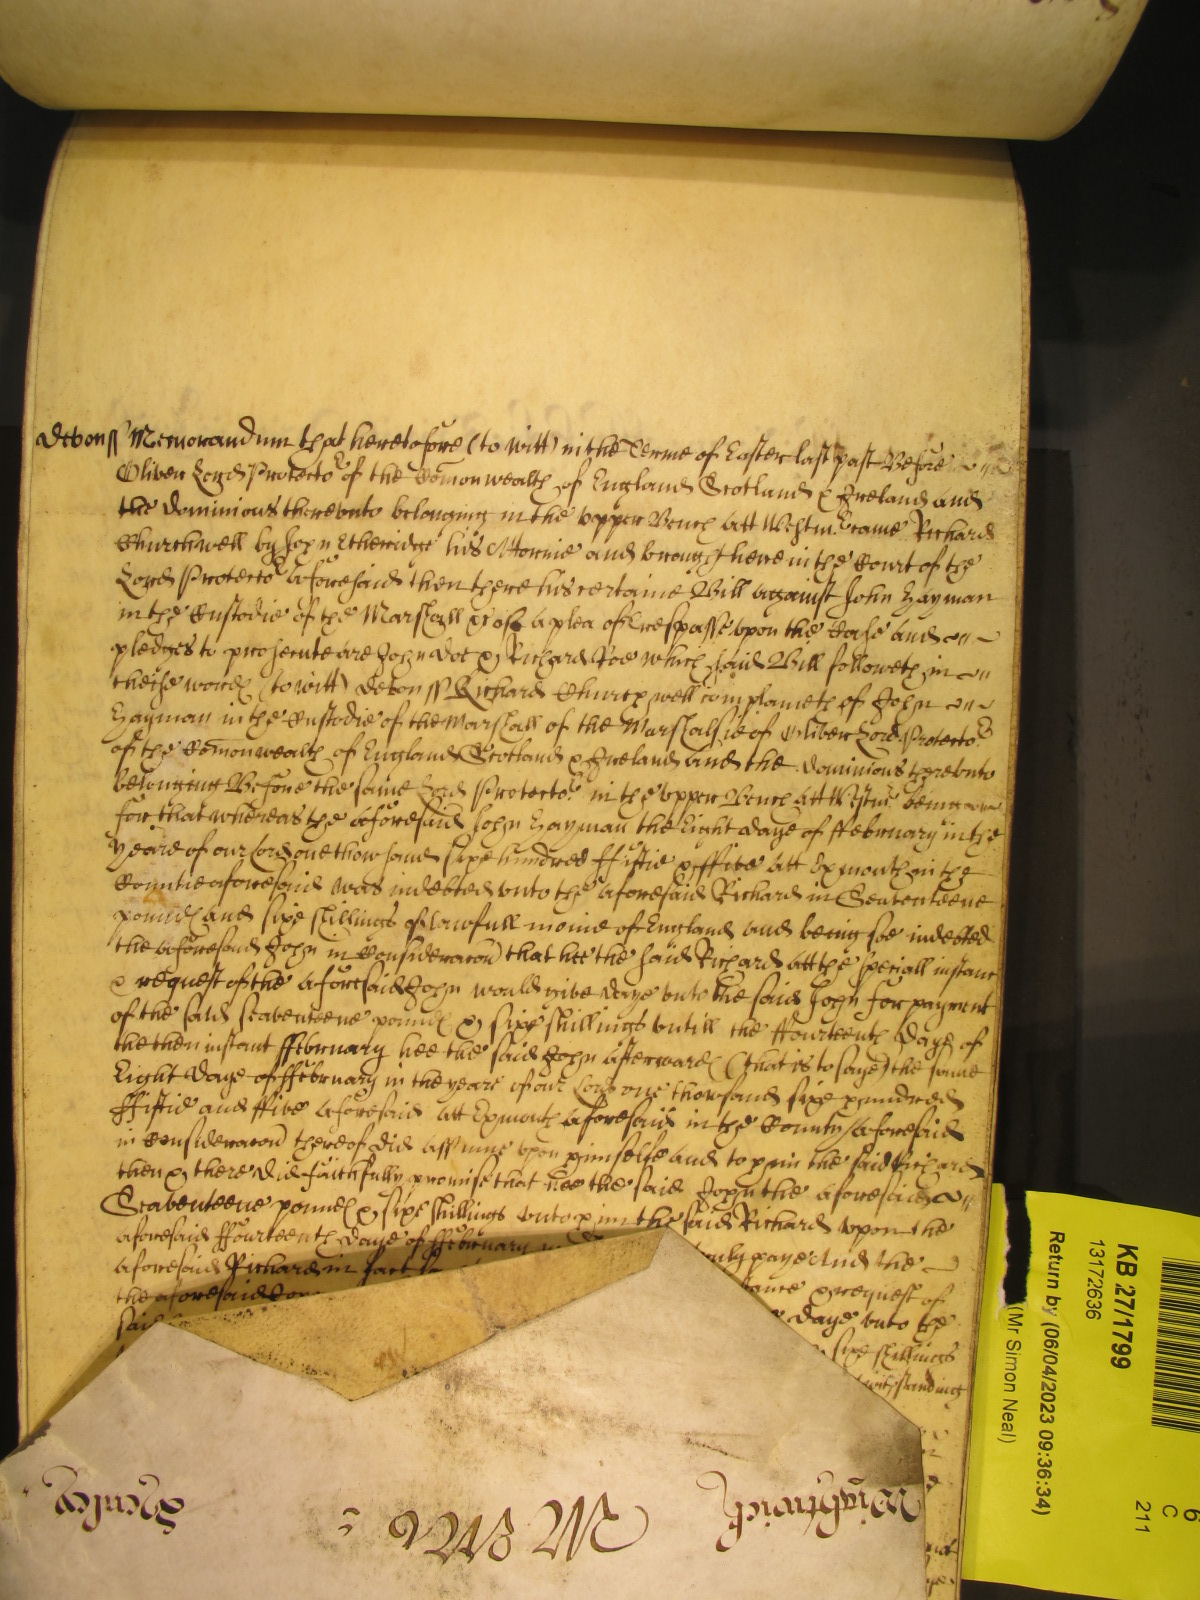 Devon ss Memorandum that heretofore (to witt) in the Terme of Easter last past Before
Oliver Lord Protector of the Comonwealth of England Scotland & Ireland and
the dominions thereunto belonging in the vpper Bench att Westm. Came Richard
Churchwell by John Etheridge his Attornie and brought here in the Court of the
Lord Protector aforesaid then there his certaine Bill against John Hayman
in the Custodie of the Marshall &c of a plea of Trespasse vpon the Case and
pledges to prosecute are John Doe & Richard Roe which said Bill followeth in
theise words (to witt) Devon ss Richard Churchwell complaineth of John
Hayman in the Custodie of the Marshall of the Marshalsie of Oliver Lord Protector
of the Comonwealth of England Scotland & Ireland and the dominions thereunto
belonging Before the same Lord Protector in the vpper Bench att Westm. being
for that whereas the aforesaid John Hayman the Eight daye of ffebruary in the
yeare of our Lord one thowsand sixe hundred ffiftie & ffive att Exmouth in the
Countie aforesaid was indebted vnto the aforesaid Richard in Seaventeene
pounds and sixe shillings of lawfull monie of England and being soe indebted
the aforesaid John in Consideracon that hee the said Richard att the speciall instance
& request of the aforesaid John would give daye vnto the said John for payment
of the said seaventeene pounds & sixe shillings vntill the ffourteenth daye of
the then instant ffebruary hee the said John afterwards (that is to saye) the same
Eight daye of ffebruary in the yeare of our Lord one thowsand sixe hundred
ffiftie and ffive aforesaid att Exmouth aforesaid in the County aforesaid
in Consideracon thereof did assume vpon himselfe and to him the said Richard
then & there did faithfully promise that hee the said John the aforesaid
Seaventeene pounds & sixe shillings vnto him the said Richard vpon the
aforesaid ffourteenth daye of ffebruary truly paye And the
aforesaid Richard in fact & request of
the aforesaid daye vnto the
said sixe shillings
withstanding
Wightwich
Henley
KB 27/1799
13172636
Return by (06/04/2023 09:36:34)
(Mr Simon Neal)
6
C
211